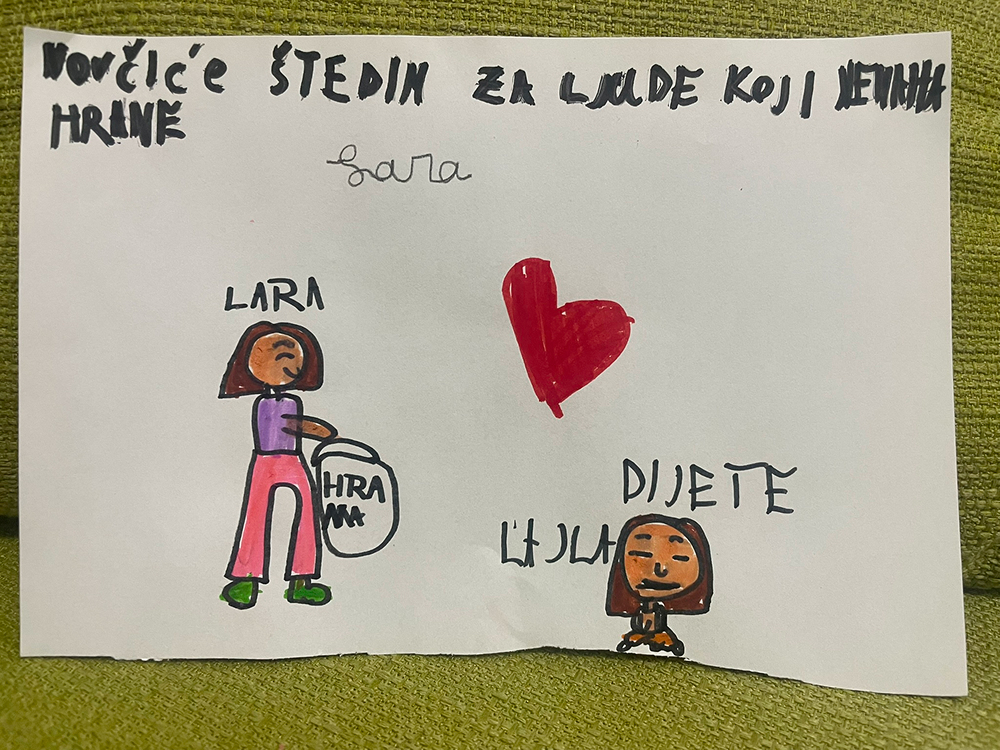 NOVČIĆE ŠTEDIM ZA LJUDE KOJI NEMAJU
HRANE
Lara
LARA
HRA
NA
DIJETE
LAJLA